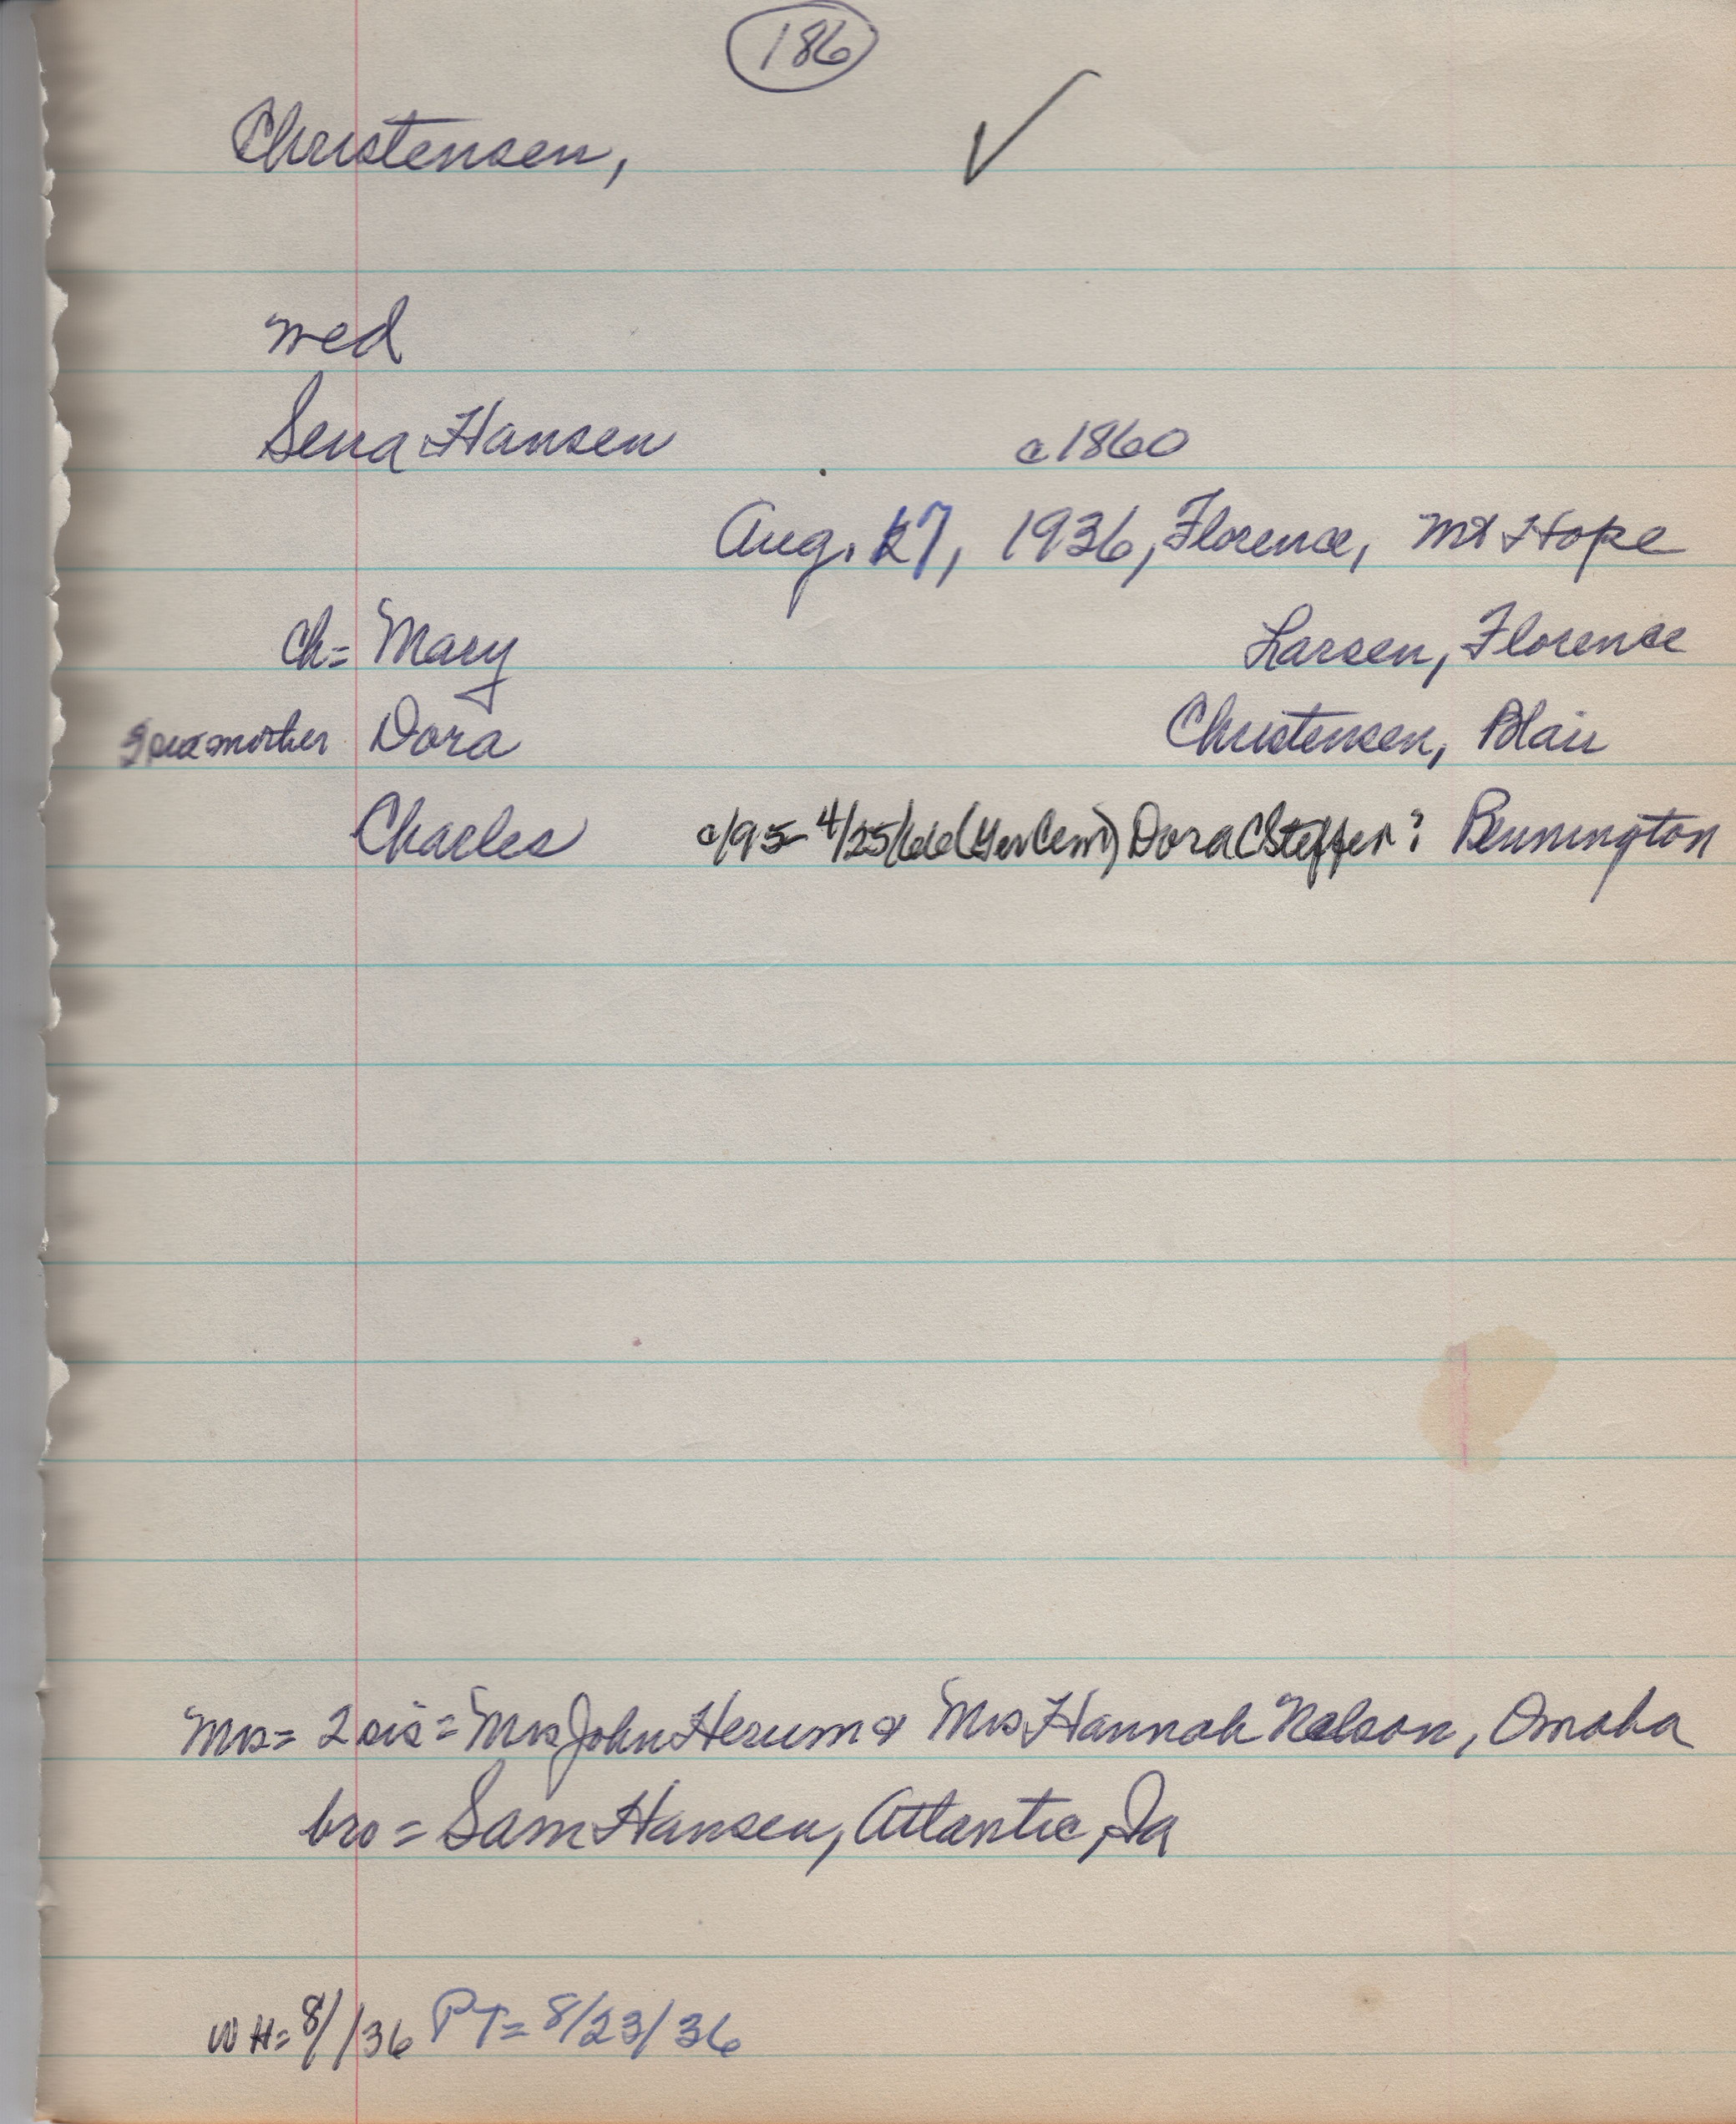 186
Christensen,
wed
Sena Hansen c1860
Aug. 17, 1936, Florence, Mt Hope
ch= Mary Larsen, Florence
Dora Christensen, Blair
Charles c/95- 4/25/66 (Cem) Dora C Steffen? Bennington
Mrs= 2 sis= Mrs John Herum & Mrs Hannah Nelson, Omaha
bro= Sam Hansen, Atlantic, Ia
WH= 8/ /36 PT= 8/23/36